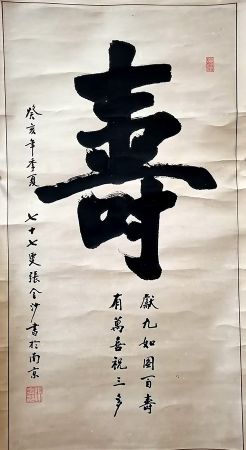 壽
獻九如圖百壽
有萬喜祝三多
癸亥年季夏 七十七叟張金沙書於南京